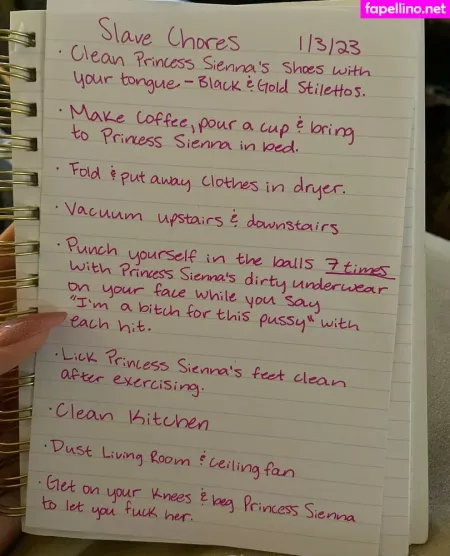 fapellino.net
Slave Chores 1/3/23
· Clean Princess Sienna's shoes with
your tongue – Black & Gold Stilettos.
· Make coffee, pour a cup & bring
to Princess Sienna in bed.
· Fold & put away clothes in dryer.
· Vacuum upstairs & downstairs
· Punch yourself in the balls 7 times
with Princess Sienna's dirty underwear
on your face while you say
"I'm a bitch for this pussy" with
each hit.
· Lick Princess Sienna's feet clean
after exercising.
· Clean Kitchen
· Dust Living Room & ceiling fan
· Get on your knees & beg Princess Sienna
to let you fuck her.